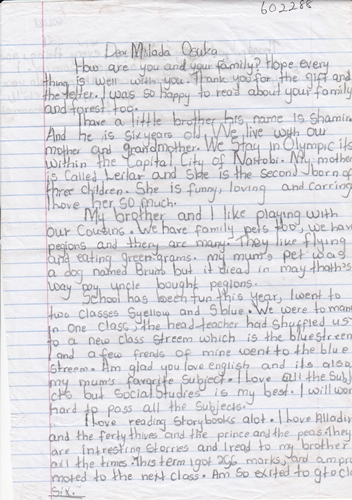 602288
Dear Milada Osuka
How are you and your family? Hope every
thing is well with you. Thank you for the gift and
the letter. I was so happy to read about your family
and forest too.
I have a little brother his name is Shamin.
And he is six years old. We live with our
mother and grandmother. We Stay in Olympic its
within the Capital City of Nairobi. My mother
is Called Leilar and She is the second born of
three children. She is funny, loving and Carring
I love her so much.
My brother and I like playing with
our Cousins. We have family pets too, we have
pegions and ther are many. They like flying
and eating green grams. my mum's pet was
a dog named Bruno but it diead in may thath's
way my uncle bought pegions.
School has been fun this year, I went to
two classes 5yellow and 5blue. We were to many
in One class, the head teacher had Shuffled us
to a new class streem which is the blue streem
I and a few frends of mine went to the blue
streem. Am glad you love english and its also
my mum's favorite Subject. I love all the Subje
cts but Social Studies is my best. I will work
hard to pass all the Subjects.
I love reading Storybooks alot. I love Alladin
and the forty thives and the prince and the peas. They
are intresting Storries and I read to my brother
all the times. This term I got 296 marks, and am pro
moted to the next class. Am So exited to go to cla
six.